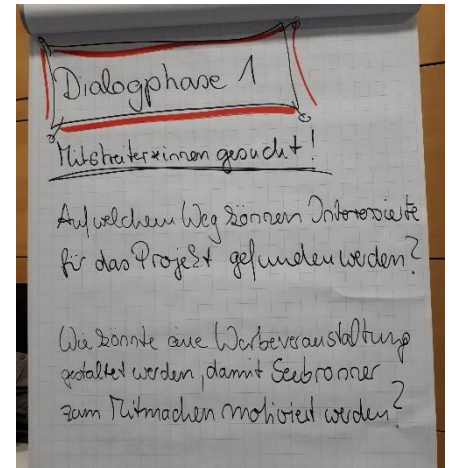 Dialogphase 1
Mitstreiter*innen gesucht!
Auf welchem Weg können Interessierte
für das Projekt gefunden werden?
Wie könnte eine Werbeveranstaltung
gestaltet werden, damit Seebronner
zum Mitmachen motiviert werden?